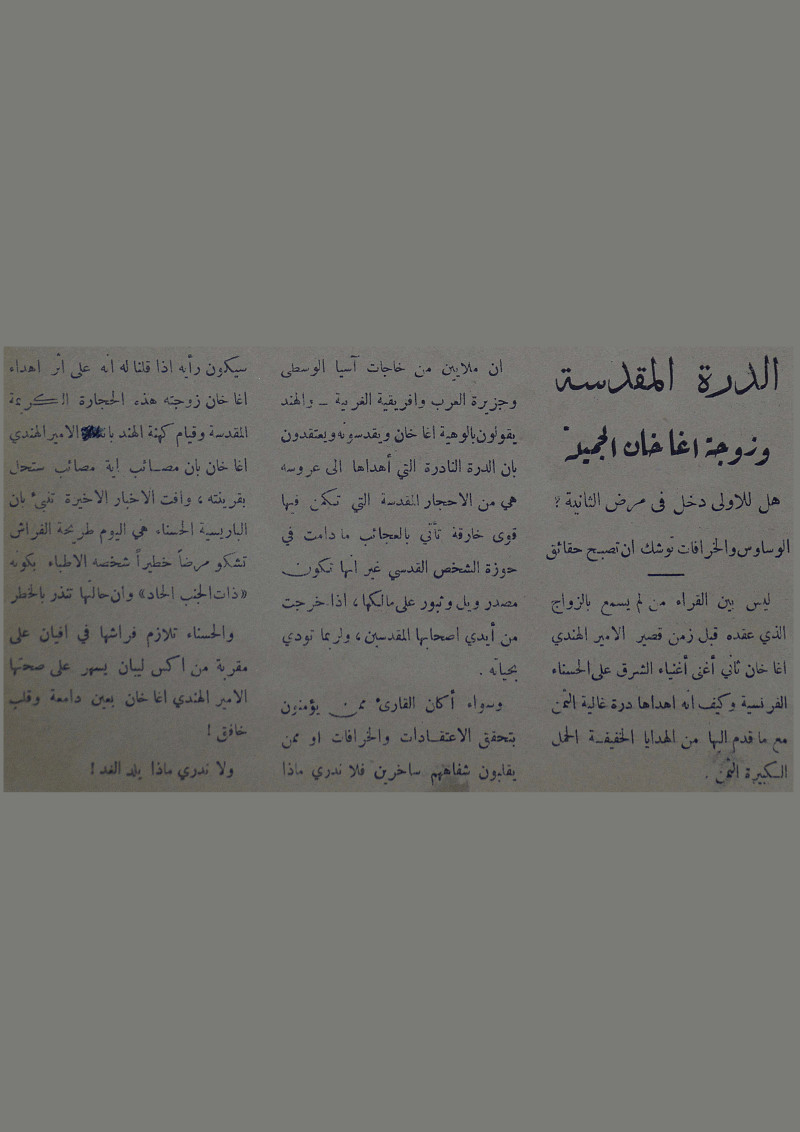 الدرة المقدسة
وزوجة اغا خان الجميلة
هل للاولى دخل فى مرض الثانية ؟
الوساوس والخرافات توشك ان تصبح حقائق
ليس بين القراء من لم يسمع بالزواج
الذي عقده قبل زمن قصير الامير الهندي
اغا خان ثاني أغنى أغنياء الشرق على الحسناء
الفرنسية وكيف انه اهداها درة غالية الثمن
مع ما قدم اليها من الهدايا الخفيفة الحمل
الكبيرة الثمن .
ان ملايين من خاجات آسيا الوسطى
وجزيرة العرب وافريقية الغربية - والهند
يقولون بالوهية اغا خان ويقدسونه ويعتقدون
بان الدرة النادرة التي أهداها الى عروسه
هي من الاحجار المقدسة التي تكمن فيها
قوى خارقة تأتي بالعجائب ما دامت في
حوزة الشخص القدسي غير انها تكون
مصدر ويل وثبور على مالكها ، اذا خرجت
من أيدي اصحابها المقدسين ، ولربما تودي
بحياته .
وسواء أكان القارئ ممن يؤمنون
بتحقق الاعتقادات والخرافات او ممن
يقلبون شفاههم ساخرين فلا ندري ماذا
سيكون رأيه اذا قلنا له انه على اثر اهداء
اغا خان زوجته هذه الحجارة الكريمة
المقدسة وقيام كهنة الهند الامير الهندي
اغا خان بان مصائب اية مصائب ستحل
بقرينته ، وافت الاخبار الاخيرة تنبئ بان
الباريسية الحسناء هي اليوم طريحة الفراش
تشكو مرضاً خطيراً شخصه الاطباء بكونه
«ذات الجنب الحاد» وان حالتها تنذر بالخطر
والحسناء تلازم فراشها في افيان على
مقربة من اكس ليبان يسهر على صحتها
الامير الهندي اغا خان بعين دامعة وقلب
خافق !
ولا ندري ماذا يلد الغد !